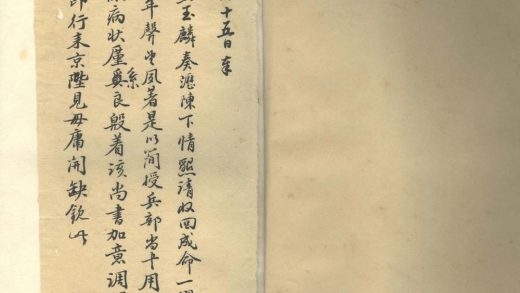 十五日奉
玉麟奏瀝陳下情懇請收回成命一
年聲望夙著是以簡授兵部尚用
病狀厪系良殷着該尚書加意調
即行来京陛見毋庸開缺欽此